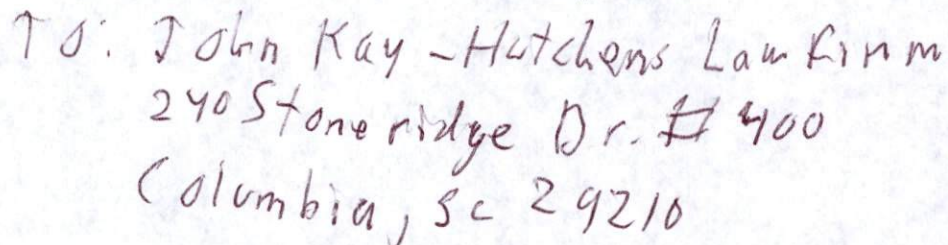 To: John Kay - Hutchens Law Firm
240 Stoneridge Dr. # 400
Columbia, SC 29210